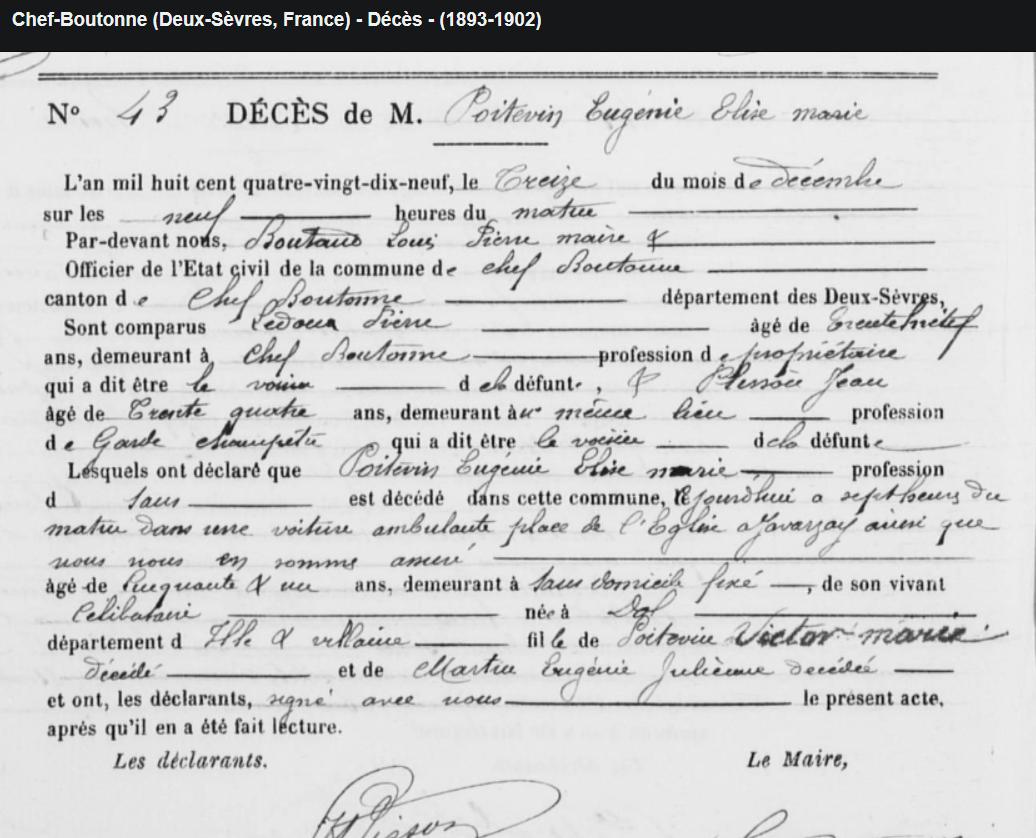 Chef-Boutonne (Deux-Sèvres, France) - Décès - (1893-1902)
N° 43 DÉCÈS de M. Poitevin Eugénie Elise marie
L'an mil huit cent quatre-vingt-dix-neuf, le Treize du mois de décembre
sur les neuf heures du matin
Par-devant nous, Boutaud Louis Pierre maire &
Officier de l'Etat civil de la commune de chef Boutonne
canton de Chef Boutonne département des Deux-Sèvres,
Sont comparus Pierre âgé de
ans, demeurant à Chef Boutonne profession de propriétaire
qui a dit être le voisin de la défunte, & Jean
âgé de Trente quatre ans, demeurant au même lieu profession
de Garde champêtre qui a dit être le voisin de la défunte
Lesquels ont déclaré que Poitevin Eugénie Elise marie profession
d Sans est décédé dans cette commune, a sept heures du
matin dans une voiture ambulante place de l'Eglise a Javarzay ainsi que
nous nous en somme assuré
âgé de Cinquante & un ans, demeurant à Sans domicile fixé, de son vivant
Célibataire née à Dol
département d Ille & villaine fille de Poitevin Victor marie
décédé et de Martin Eugénie Julienne décédée
et ont, les déclarants, signé avec nous le présent acte,
après qu'il en a été fait lecture.
Les déclarants. Le Maire,